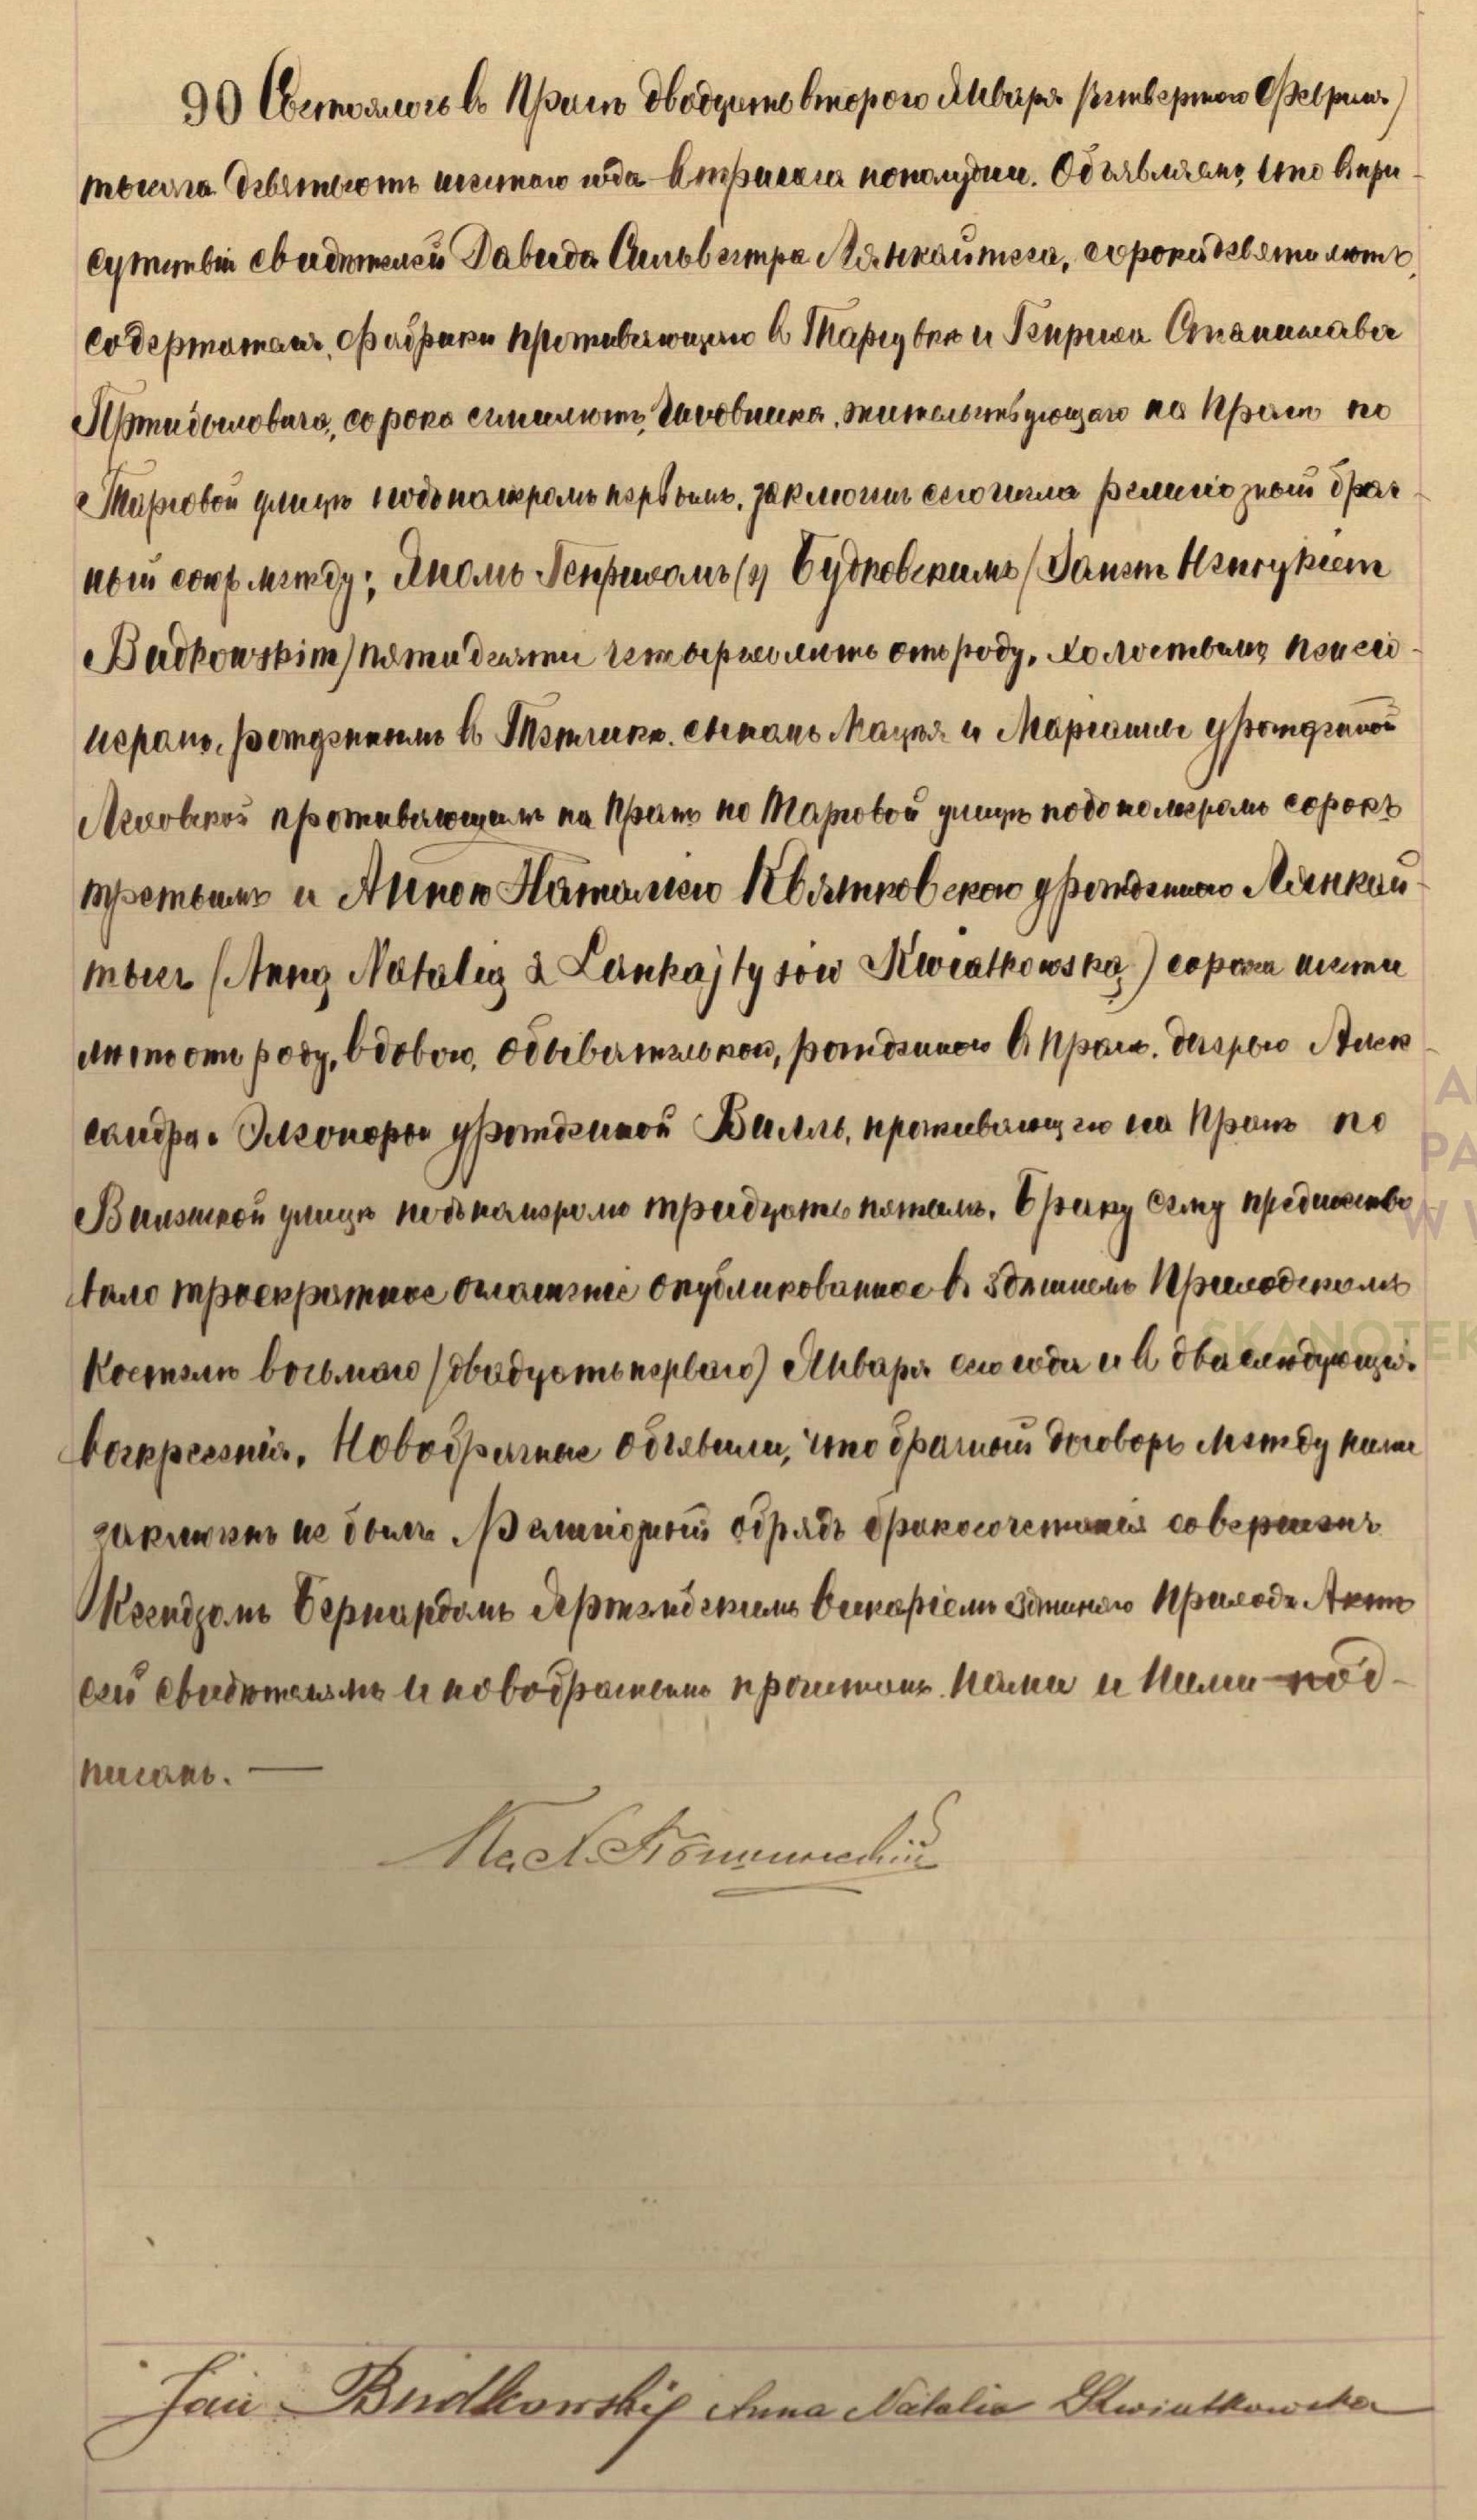 90 Состоялось въ Прагѣ двадцать второго Января /четвертаго Февраля/
тысяча девятьсотъ шестаго года въ три часа пополудни. Объявляемъ, что въ при-
сутствіи свидѣтелей Давида Сильвестра Лянкайтеса, сорока девяти лѣтъ,
содержателя фабрики проживающаго въ Таргувкѣ и Генриха Станислава
сорока семи лѣтъ, чиновника, жительствующаго на Прагѣ по
Тарговой улицѣ подъ номеромъ первымъ, заключенъ сего числа религіозный брач-
ный союзъ между: Яномъ Генрихомъ Будковскимъ (Janem Henrykiem
Budkowskim) пятидесяти четырехъ лѣтъ отъ роду, холостымъ, пенсіо-
неромъ, рожденнымъ въ сыномъ Мацѣя и Маріанны урожденной
проживающимъ на Прагѣ по Тарговой улицѣ подъ номеромъ сорокъ
третьимъ и Анною Наталіею Квятковскою урожденною Лянкай-
тысъ (Anną Natalią z Lankajtysów Kwiatkowską) сорока шести
лѣтъ отъ роду, вдовою, обывателькою, рожденною въ Прагѣ, дочерью Алек-
сандра и Элеоноры урожденной Вилль, проживающею на Прагѣ по
Виленской улицѣ подъ номеромъ тридцать пятымъ. Браку сему предшество-
вало троекратное оглашеніе опубликованное въ здѣшнемъ Приходскомъ
Костелѣ восьмаго /двадцать перваго/ Января сего года и въ два слѣдующія
воскресенія. Новобрачные объявили, что брачный договоръ между ними
заключенъ не былъ. Религіозный обрядъ бракосочетанія совершенъ
Ксендзомъ Бернардомъ викаріемъ здѣшняго Прихода. Актъ
сей свидѣтелямъ и новобрачнымъ прочитанъ, Нами и Ними под-
писанъ. —
Jan Budkowski Anna Natalia Kwiatkowska